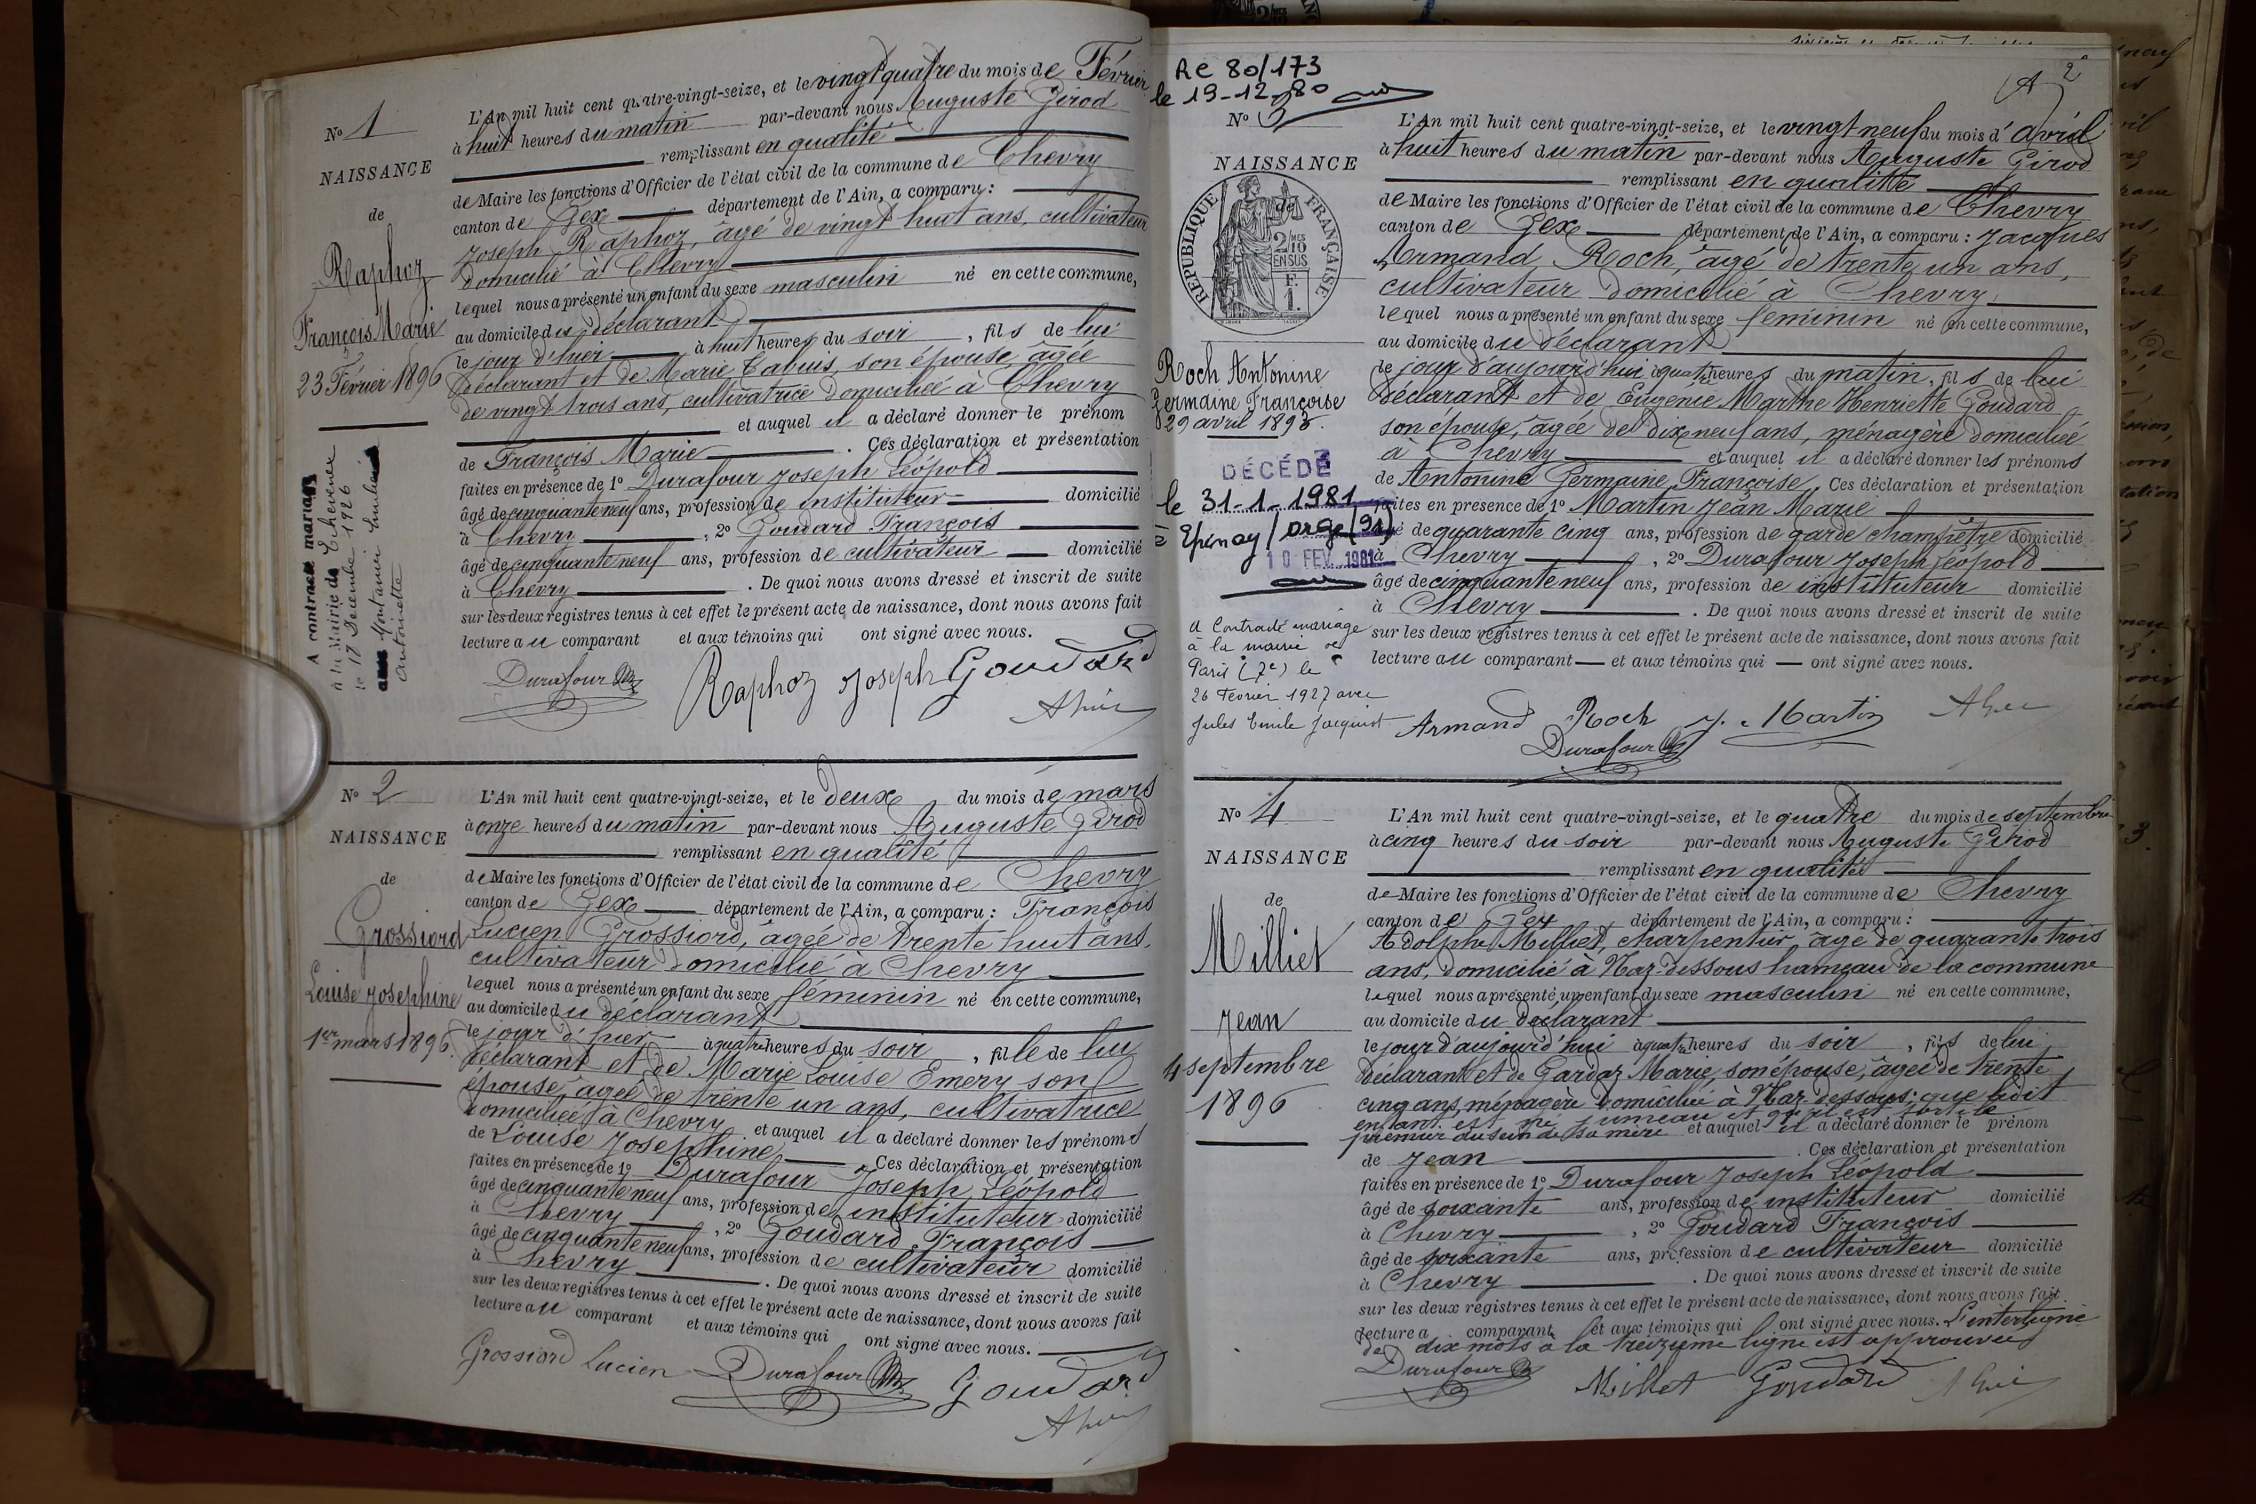 No 1
NAISSANCE
de
Raphoz
François Marie
23 Février 1896
A contracté mariage
à la Mairie de Chevenex
le 17 Décembre 1926
avec
Antoinette
L'An mil huit cent quatre-vingt-seize, et le vingt quatre du mois de Février
à huit heures du matin par-devant nous Auguste Girod
remplissant en qualité
de Maire les fonctions d'Officier de l'état civil de la commune de Chevry
canton de Gex département de l'Ain, a comparu :
Joseph Raphoz, âgé de vingt huit ans, cultivateur
domicilié à Chevry
lequel nous a présenté un enfant du sexe masculin né en cette commune,
au domicile du déclarant
le jour d'hier à huit heures du soir, fils de lui
déclarant et de Marie Tabuis, son épouse, âgée
de vingt trois ans, cultivatrice domiciliée à Chevry
et auquel il a déclaré donner le prénom
de François Marie. Ces déclaration et présentation
faites en présence de 1o Durafour Joseph Léopold
âgé de cinquante neuf ans, profession de instituteur domicilié
à Chevry, 2o Goudard François
âgé de cinquante neuf ans, profession de cultivateur domicilié
à Chevry. De quoi nous avons dressé et inscrit de suite
sur les deux registres tenus à cet effet le présent acte de naissance, dont nous avons fait
lecture au comparant et aux témoins qui ont signé avec nous.
Durafour Raphoz Joseph Goudard
No 2
NAISSANCE
de
Grossiord
Louise Josephine
1er mars 1896.
L'An mil huit cent quatre-vingt-seize, et le deux du mois de mars
à onze heures du matin par-devant nous Auguste Girod
remplissant en qualité
de Maire les fonctions d'Officier de l'état civil de la commune de Chevry
canton de Gex département de l'Ain, a comparu : François
Lucien Grossiord, âgée de trente huit ans,
cultivateur domicilié à Chevry
lequel nous a présenté un enfant du sexe féminin né en cette commune,
au domicile du déclarant
le jour d'hier à quatre heures du soir, fille de lui
déclarant et de Marie Louise Emery son
épouse, âgée de trente un ans, cultivatrice
domiciliée à Chevry et auquel il a déclaré donner les prénoms
de Louise Josephine. Ces déclaration et présentation
faites en présence de 1o Durafour Joseph Léopold
âgé de cinquante neuf ans, profession de instituteur domicilié
à Chevry, 2o Goudard François
âgé de cinquante neuf ans, profession de cultivateur domicilié
à Chevry. De quoi nous avons dressé et inscrit de suite
sur les deux registres tenus à cet effet le présent acte de naissance, dont nous avons fait
lecture au comparant et aux témoins qui ont signé avec nous.
Grossiord Lucien Durafour Goudard
2e
Re 80/173
le 19-12-80
No 3
NAISSANCE
de
RÉPUBLIQUE FRANÇAISE
2/10MES
EN SUS
F.
1.
Roch Antonine
Germaine Françoise
29 avril 1896.
DÉCÉDÉ
le 31-1-1981
à Epinay/Orge (91)
10 FEV. 1981
A Contracté mariage
à la mairie de
Paris (7e) le
26 Février 1927 avec
Jules Emile Jacquist
L'An mil huit cent quatre-vingt-seize, et le vingt neuf du mois d'avril
à huit heures du matin par-devant nous Auguste Girod
remplissant en qualité
de Maire les fonctions d'Officier de l'état civil de la commune de Chevry
canton de Gex département de l'Ain, a comparu : Jacques
Armand Roch, âgé de trente un ans,
cultivateur domicilié à Chevry
lequel nous a présenté un enfant du sexe féminin né en cette commune,
au domicile du déclarant
le jour d'aujourd'hui à quatre heures du matin, fils de lui
déclarant et de Eugénie Marthe Henriette Goudard
son épouse, âgée de dix neuf ans, ménagère domiciliée
à Chevry et auquel il a déclaré donner les prénoms
de Antonine Germaine Françoise. Ces déclaration et présentation
faites en présence de 1o Martin Jean Marie
âgé de quarante cinq ans, profession de garde champêtre domicilié
à Chevry, 2o Durafour Joseph Léopold
âgé de cinquante neuf ans, profession de instituteur domicilié
à Chevry. De quoi nous avons dressé et inscrit de suite
sur les deux registres tenus à cet effet le présent acte de naissance, dont nous avons fait
lecture au comparant et aux témoins qui ont signé avec nous.
Armand Roch J. Martin
Durafour
No 4
NAISSANCE
de
Milliet
Jean
4 septembre
1896
L'An mil huit cent quatre-vingt-seize, et le quatre du mois de septembre
à cinq heures du soir par-devant nous Auguste Girod
remplissant en qualité
de Maire les fonctions d'Officier de l'état civil de la commune de Chevry
canton de Gex département de l'Ain, a comparu :
Adolphe Milliet, charpentier, âgé de quarante trois
ans, domicilié à Naz-dessous hameau de la commune
lequel nous a présenté un enfant du sexe masculin né en cette commune,
au domicile du déclarant
le jour d'aujourd'hui à quatre heures du soir, fils de lui
déclarant et de Gardaz Marie, son épouse, âgée de trente
cinq ans, ménagère domiciliée à Naz-dessous; que ledit
enfant est né jumeau et qu'il est sorti le
premier du sein de sa mère et auquel il a déclaré donner le prénom
de Jean. Ces déclaration et présentation
faites en présence de 1o Durafour Joseph Léopold
âgé de soixante ans, profession de instituteur domicilié
à Chevry, 2o Goudard François
âgé de soixante ans, profession de cultivateur domicilié
à Chevry. De quoi nous avons dressé et inscrit de suite
sur les deux registres tenus à cet effet le présent acte de naissance, dont nous avons fait
lecture a comparant et aux témoins qui ont signé avec nous. L'interligne
de dix mots à la treizième ligne est approuvée
Durafour Milliet Goudard